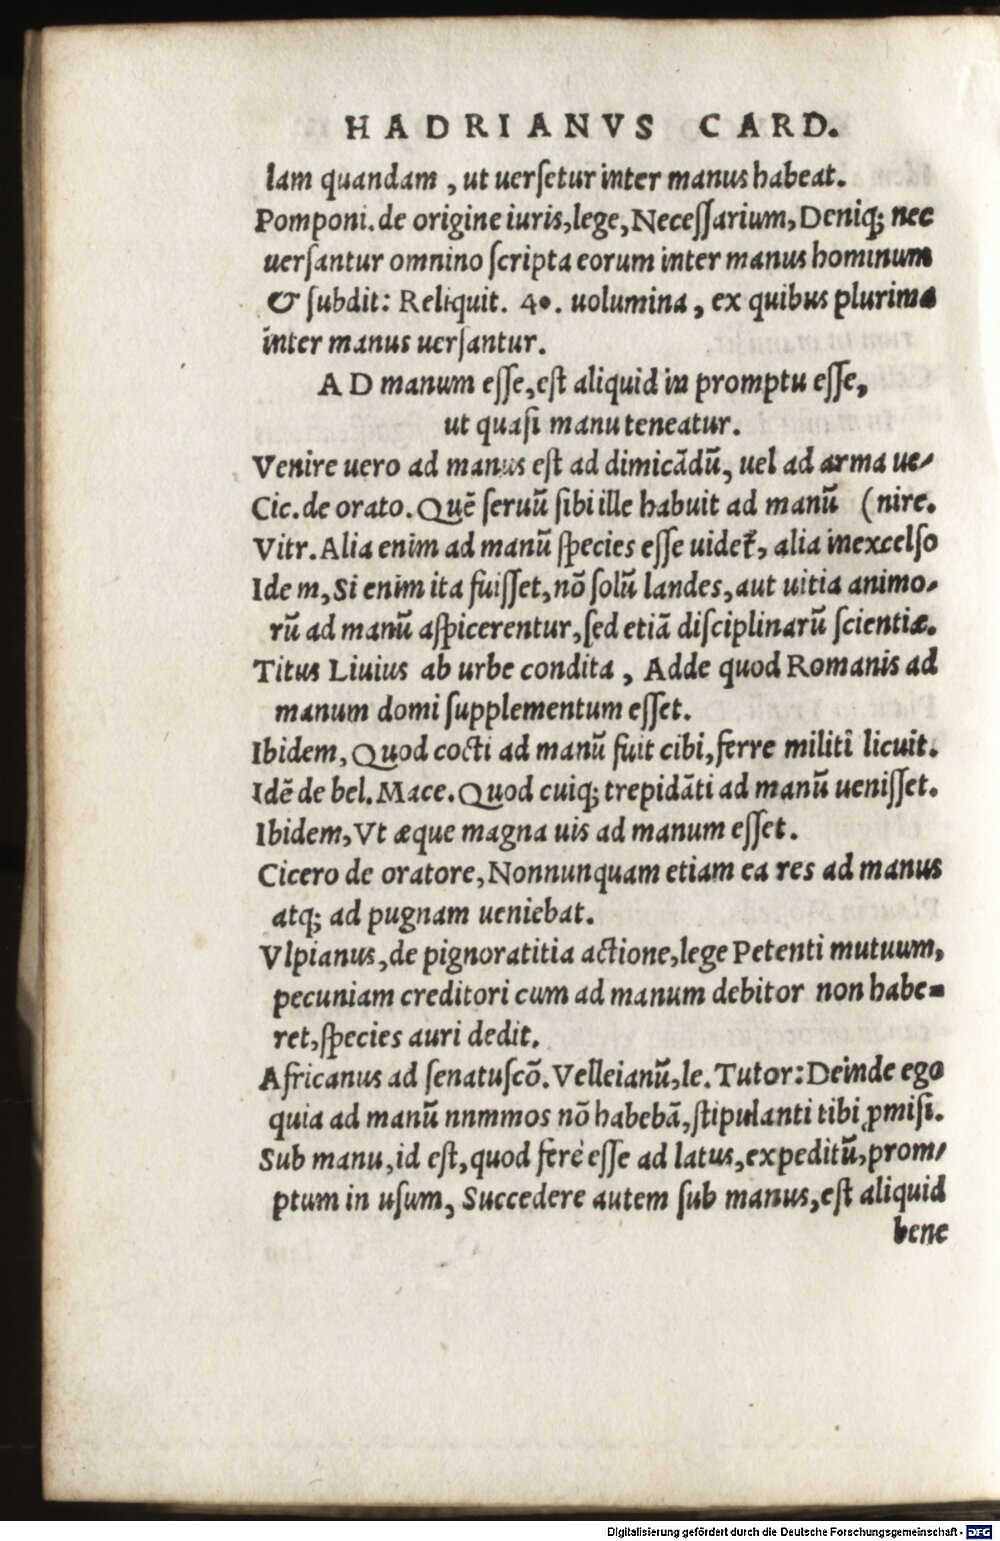 HADRIANVS CARD.
lam quandam , ut uerſetur inter manus habeat.
Pomponi. de origine iuris, lege, Neceſſarium, Deniq; nec
uerſantur omnino ſcripta eorum inter manus hominum
& ſubdit: Reliquit. 40. uolumina, ex quibus plurima
inter manus uerſantur.
AD manum eſſe, eſt aliquid in promptu eſſe,
ut quaſi manu teneatur.
Venire uero ad manus eſt ad dimicādū, uel ad arma ue-
Cic. de orato. Quē ſeruū ſibi ille habuit ad manū (nire.
Vitr. Alia enim ad manū ſpecies eſſe uidet᷑, alia inexcelſo
Idem, Si enim ita fuiſſet, nō ſolū landes, aut uitia animo-
rū ad manū aſpicerentur, ſed etiā diſciplinarū ſcientiæ.
Titus Liuius ab urbe condita , Adde quod Romanis ad
manum domi ſupplementum eſſet.
Ibidem, Quod cocti ad manū fuit cibi, ferre militi licuit.
Idē de bel. Mace. Quod cuiq; trepidāti ad manū ueniſſet.
Ibidem, Vt æque magna uis ad manum eſſet.
Cicero de oratore, Nonnunquam etiam ea res ad manus
atq; ad pugnam ueniebat.
Vlpianus, de pignoratitia actione, lege Petenti mutuum,
pecuniam creditori cum ad manum debitor non habe-
ret, ſpecies auri dedit.
Africanus ad ſenatuſcō. Velleianū, le. Tutor: Deinde ego
quia ad manū nnmmos nō habebā, ſtipulanti tibi ꝓmiſi.
Sub manu, id eſt, quod ferè eſſe ad latus, expeditū, prom-
ptum in uſum, Succedere autem ſub manus, eſt aliquid
bene
Digitalisierung gefördert durch die Deutsche Forschungsgemeinschaft - DFG